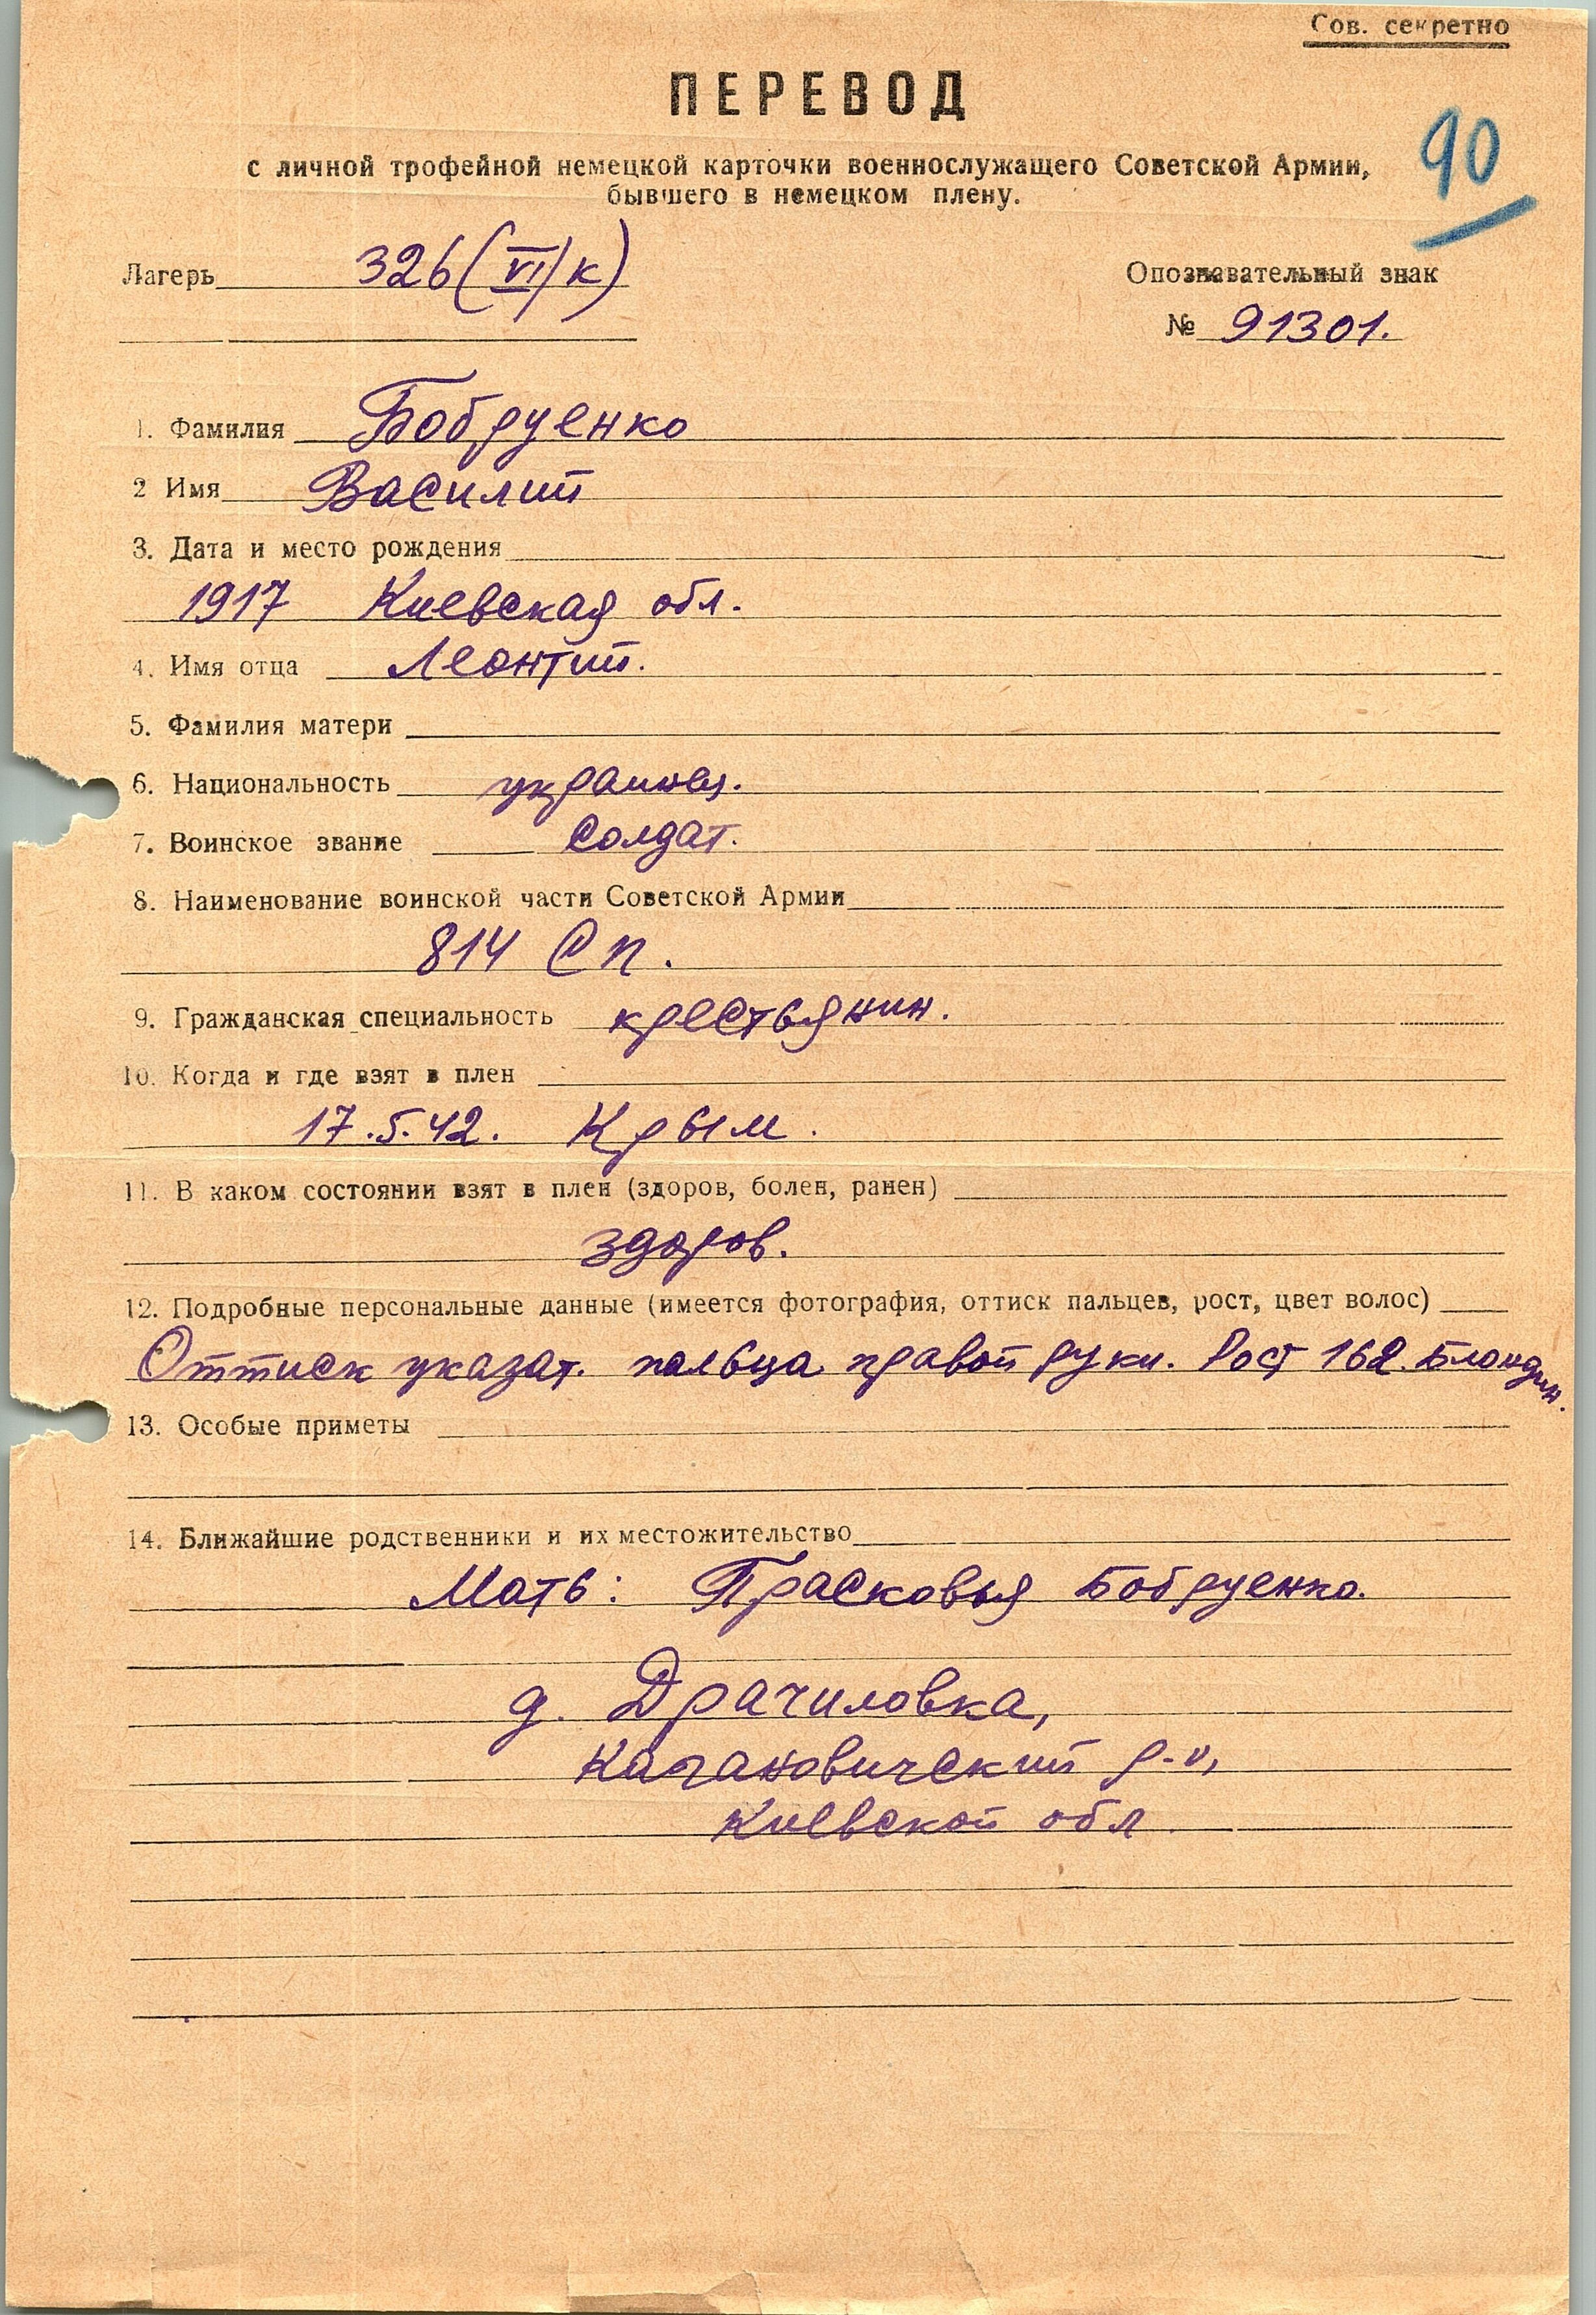 Сов. секретно
ПЕРЕВОД
90
с личной трофейной немецкой карточки военнослужащего Советской Армии,
бывшего в немецком плену.
Лагерь 326 (VI/к)
Опознавательный знак
№ 91301.
1. Фамилия Бобруенко
2 Имя Василий
3. Дата и место рождения
1917 Киевская обл.
4. Имя отца Леонтий.
5. Фамилия матери
6. Национальность украинец.
7. Воинское звание Солдат.
8. Наименование воинской части Советской Армии
814 СП.
9. Гражданская специальность крестьянин.
10. Когда и где взят в плен
17.5.42. Крым.
11. В каком состоянии взят в плен (здоров, болен, ранен)
здоров.
12. Подробные персональные данные (имеется фотография, оттиск пальцев, рост, цвет волос)
Оттиск указат. пальца правой руки. Рост 162. Блондин.
13. Особые приметы
14. Ближайшие родственники и их местожительство
Мать: Прасковья Бобруенко.
д. Драчиловка,
Кагановичский р-н,
Киевской обл.